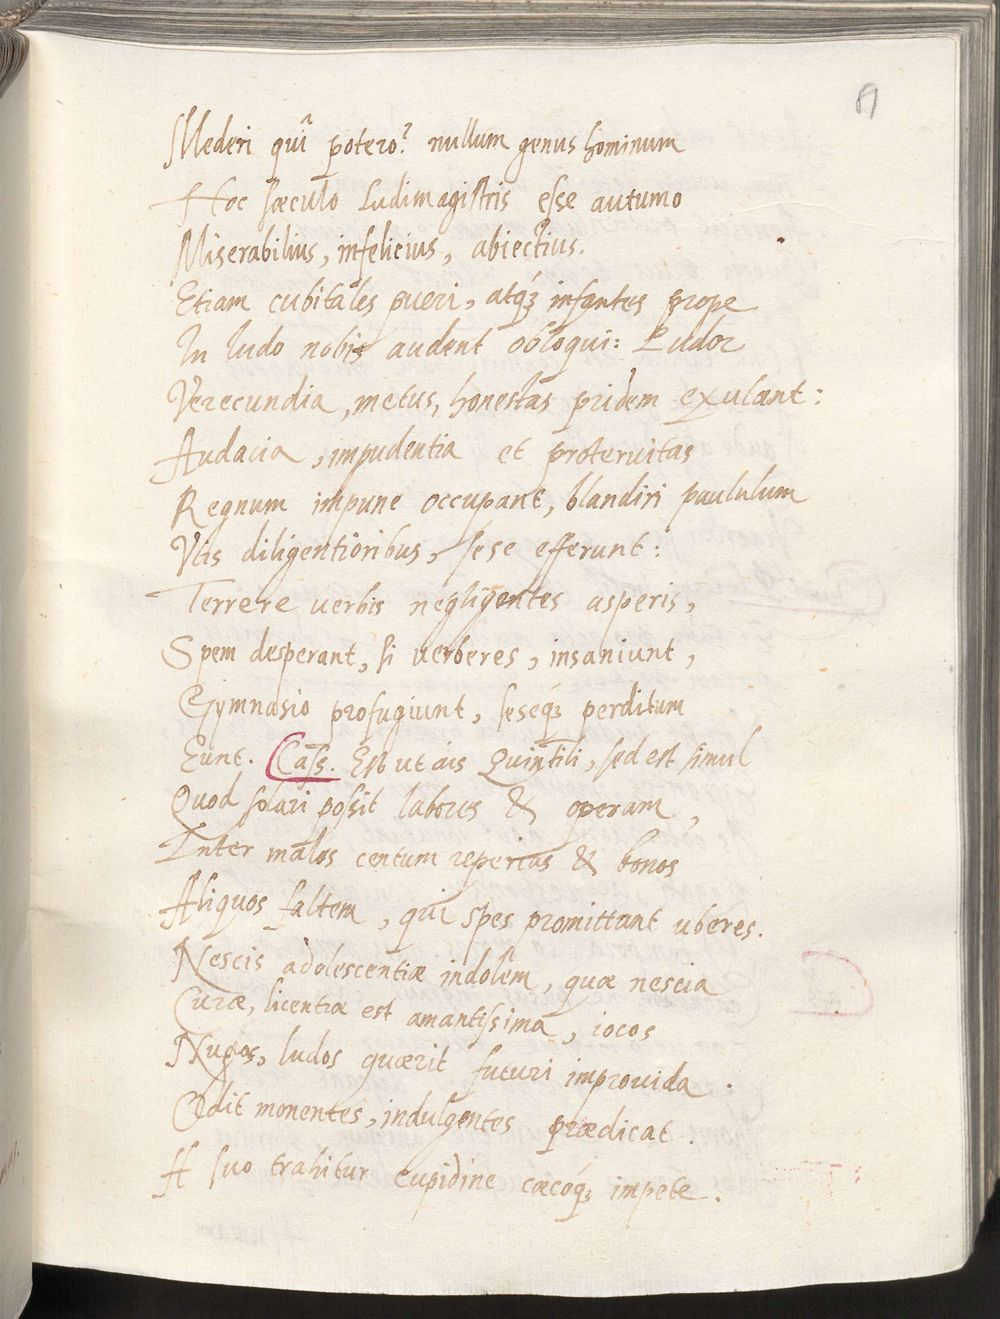 Mederi quî potero? nullum genus hominum
Hoc sæculo Ludimagistris esse autumo
Miserabilius, infelicius, abiectius.
Etiam cubitales pueri, atq́ꝫ infantes prope
In ludo nobis audent obloqui: Pudor
Verecundia, metus, honestas pridem exulant:
Audacia, impudentia et proteruitas
Regnum impune occupant, blandiri paululum
Vtis diligentioribus, sese efferunt:
Terrere verbis negligentes asperis,
Spem desperant, si verberes, insaniunt,
Gymnasio profugiunt, seseq́ꝫ perditum
Eunt. Cass. Est ut ais Quintili, sed est simul
Quod solari possit labores & operam,
Inter malos centum reperias & bonos
Aliquos saltem, qui spes promittant uberes.
Nescis adolescentiæ indolem, quæ nescia
Curæ, licentiæ est amantissima, iocos
Nugas, ludos quærit futuri improuida.
Odit monentes, indulgentes prædicat:
A suo trahitur cupidine cæcoq́ꝫ impete.